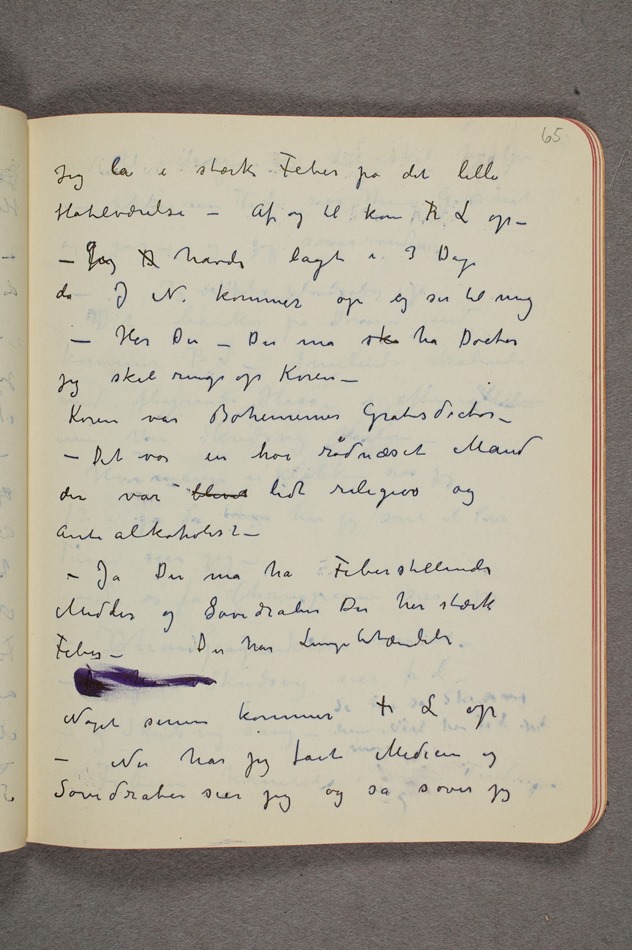 65
Jeg la i stærk Feber på det lille
Hotelværelse – Af og til kom L op –
– Jeg havde lagt i 3 Dage
da J N. kommer op og ser til mig
– Hør Du – Du må ska ha Doctor
jeg skal ringe op Koren –
Koren var Bohemernes Gratisdoctor –
– Det var en høi rødnæset Mand
der var blevet lidt religiøs og
Antialkoholist –
– Ja Du må ha Feberstillende
Midder og Sovedraber Du har stærk
Feber – Du har Lungebetændelse.
Noget senere kommer L op
– Nu har jeg faat Medicin og
Sovedraber sier jeg og så sover jeg